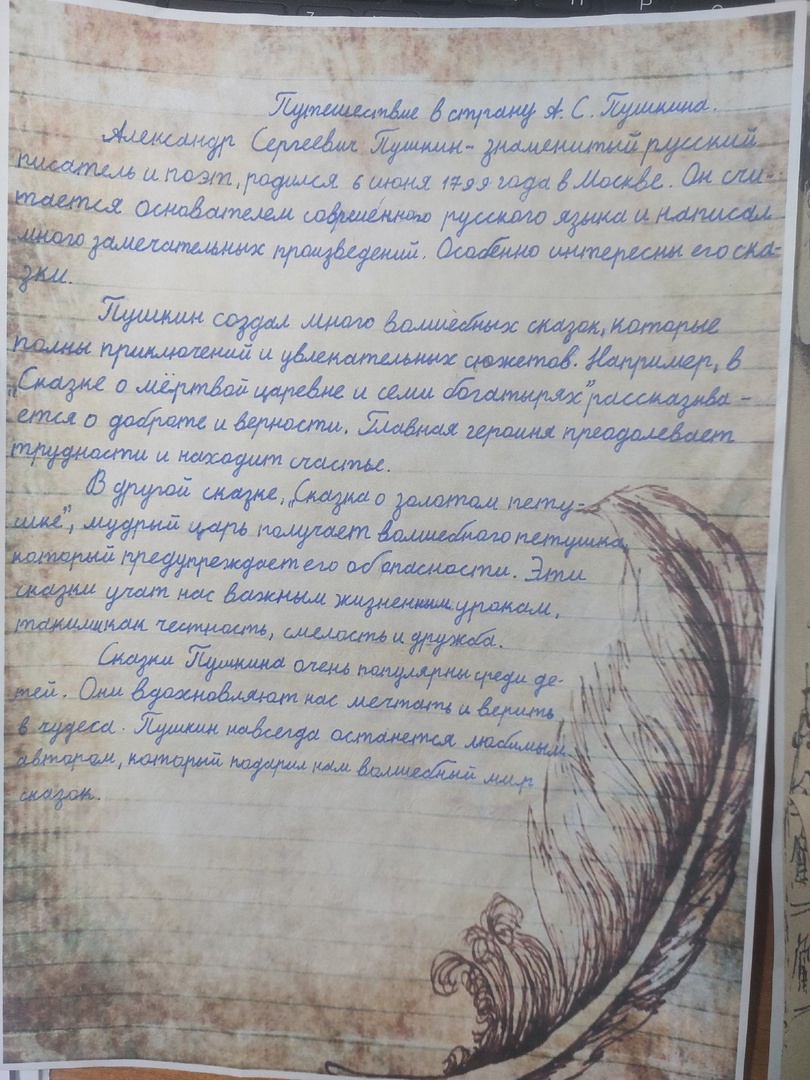 Путешествие в страну А. С. Пушкина.
Александр Сергеевич Пушкин - знаменитый русский
писатель и поэт, родился 6 июня 1799 года в Москве. Он счи-
тается основателем современного русского языка и написал
много замечательных произведений. Особенно интересны его ска-
зки.
Пушкин создал много волшебных сказок, которые
полны приключений и увлекательных сюжетов. Например, в
„Сказке о мёртвой царевне и семи богатырях” рассказыва-
ется о доброте и верности. Главная героиня преодолевает
трудности и находит счастье.
В другой сказке, „Сказка о золотом пету-
шке”, мудрый царь получает волшебного петушка,
который предупреждает его об опасности. Эти
сказки учат нас важным жизненным урокам,
таким как честность, смелость и дружба.
Сказки Пушкина очень популярны среди де-
тей. Они вдохновляют нас мечтать и верить
в чудеса. Пушкин навсегда останется любимым
автором, который подарил нам волшебный мир
сказок.